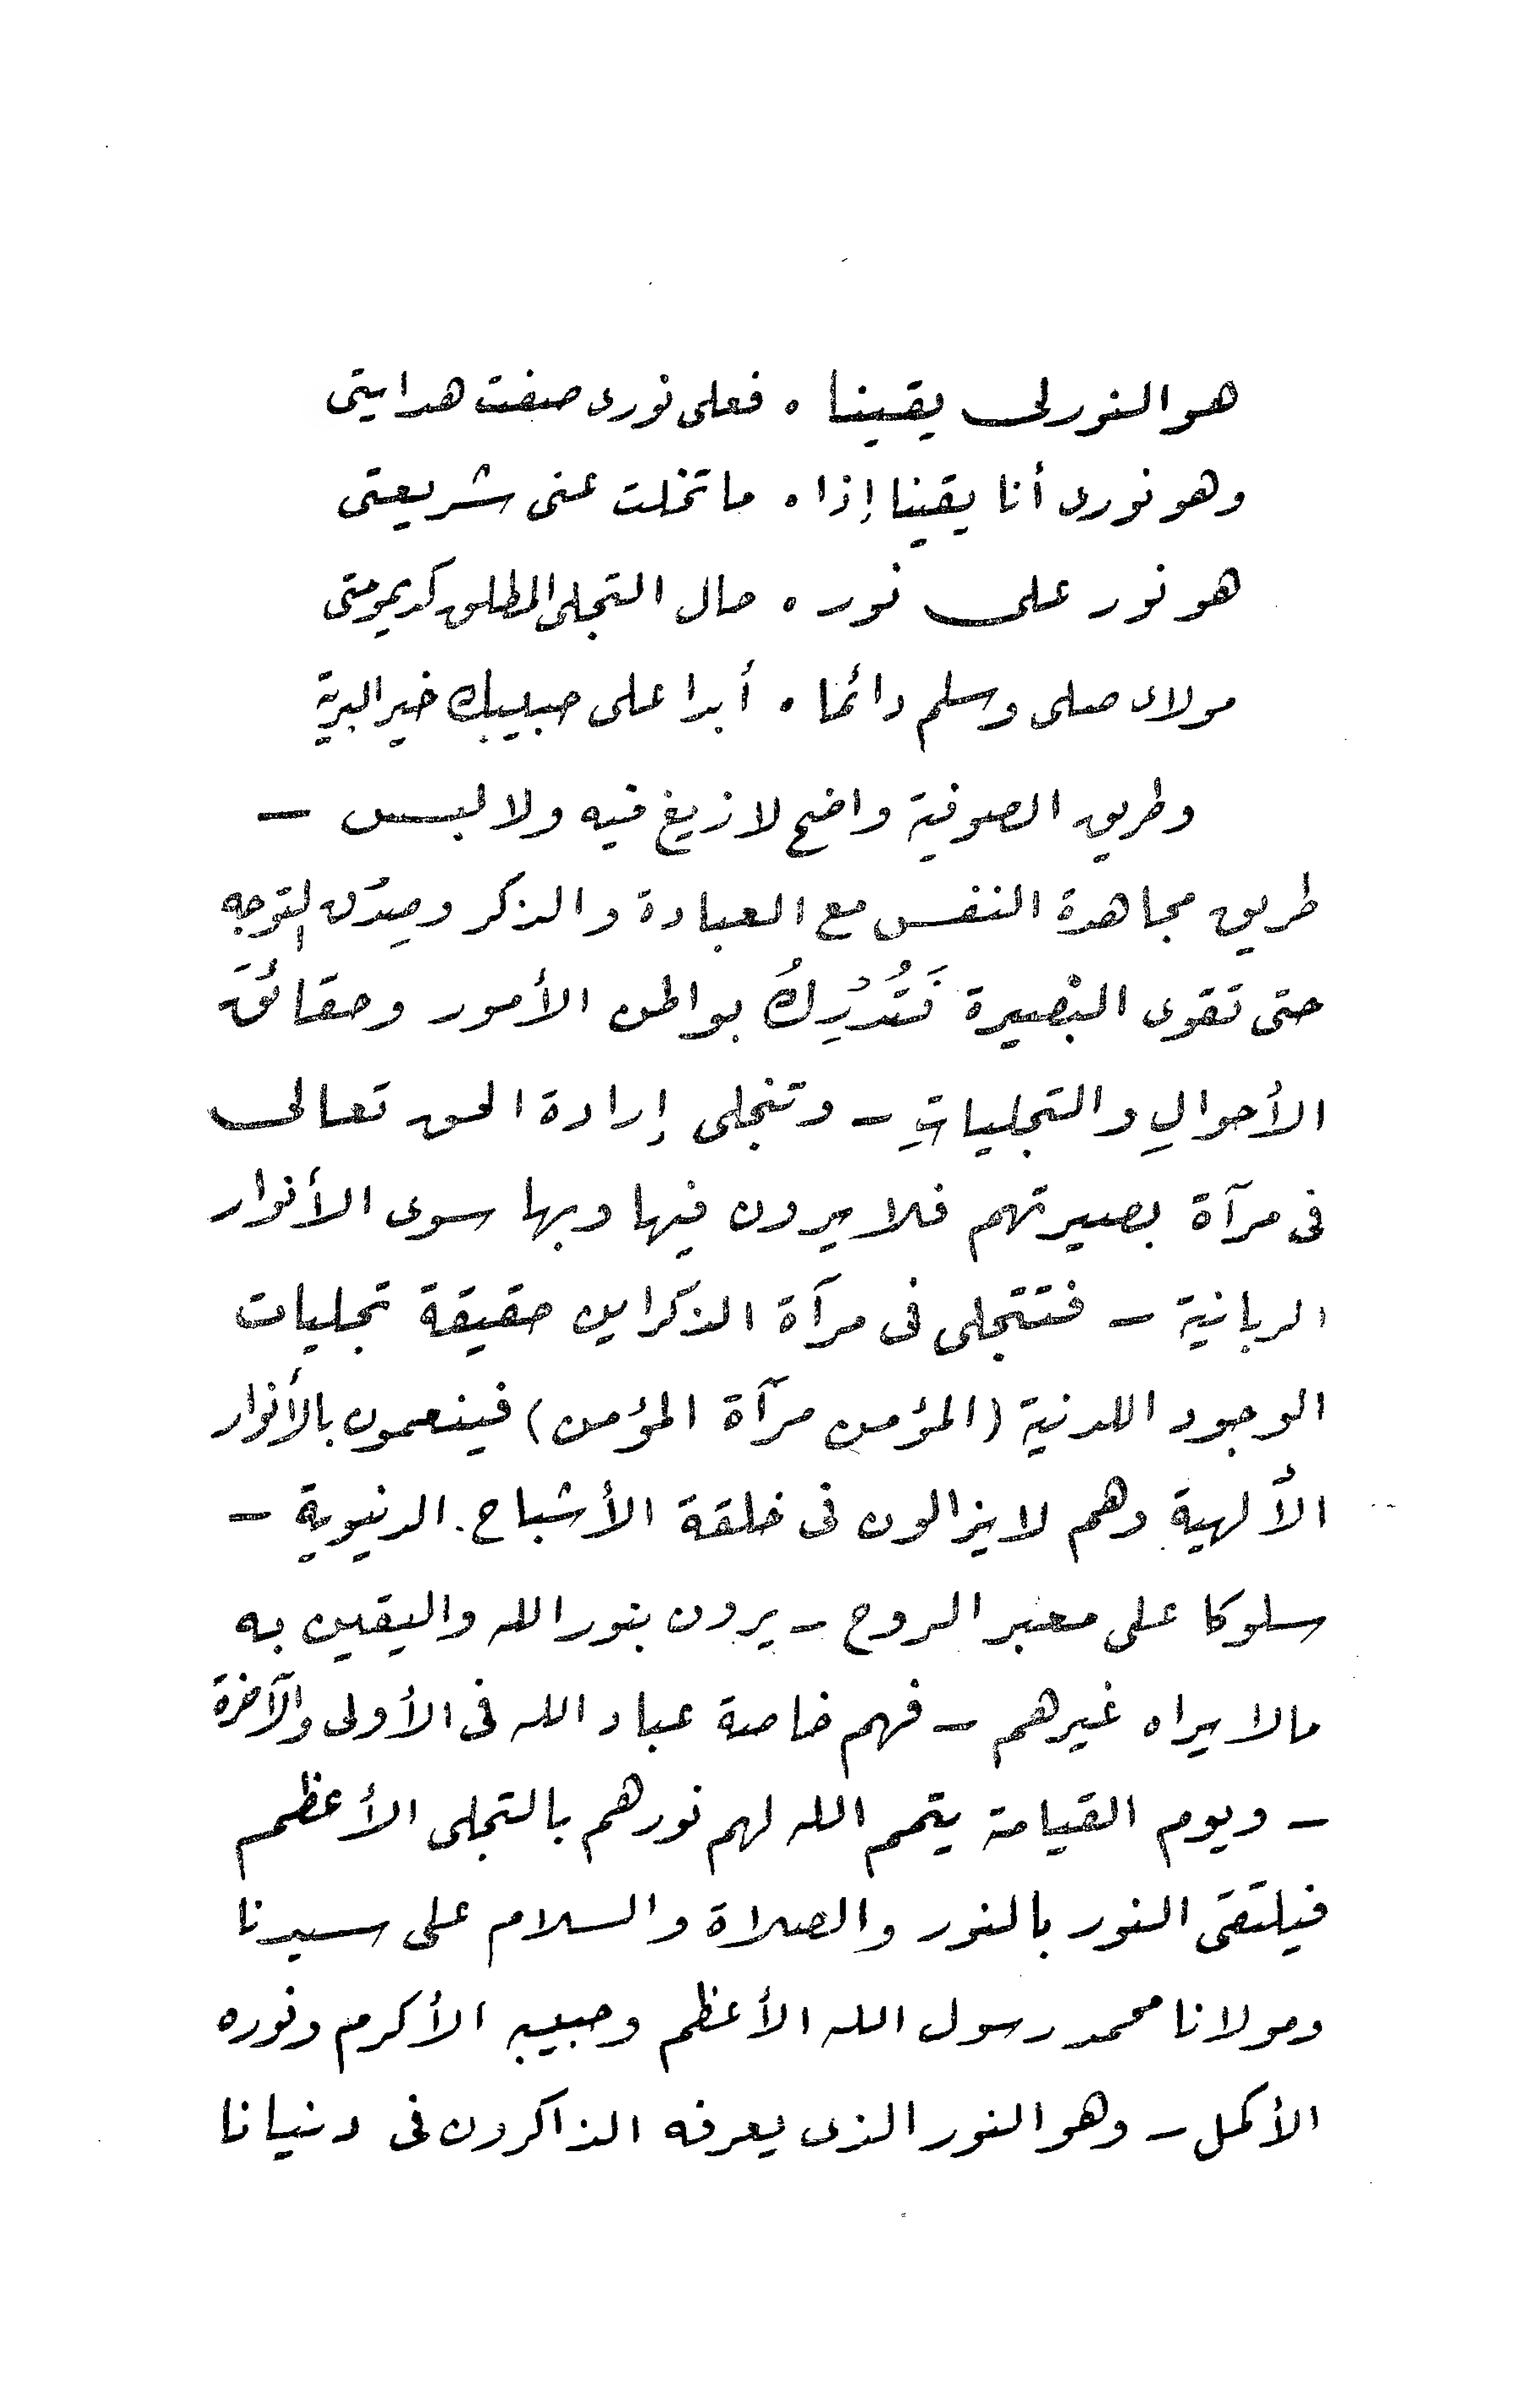 هو النور لى يقينا ٠ فعلى نورى صيغت هدايتى
وهو نورى أنا يقينا إذا ٠ ما تخلت عنى شريعتى
هو نور على نور ٠ حال التجلى المطلق كديمومتى
مولاى صلى وسلم دائما ٠ أبدا على حبيبك خير البرية
وطريق الصوفية واضح لا زيغ فيه ولا لبس –
طريق مجاهدة النفس مع العبادة والذكر وصِدْق التوجه
حتى تقوى البصيرة فَتُدْرِكُ بواطن الأمور وحقائقَ
الأحوالِ والتجلياتِ – وتنجلى إرادة الحق تعالى
فى مرآة بصيرتهم فلا يرون فيها وبها سوى الأنوار
الربانية – فتتجلى فى مرآة الذكراين حقيقة تجليات
الوجود اللدنية (المؤمن مرآة المؤمن) فينعمون بالأنوار
الألهية وهم لا يزالون فى خلقة الأشباح الدنيوية –
سلوكا على معبر الروح – يرون بنور الله واليقين به
مالا يراه غيرهم – فهم خاصة عباد الله فى الأولى والآخرة
– ويوم القيامة يتمم الله لهم نورهم بالتجلى الأعظم
فيلتقى النور بالنور والصلاة والسلام على سيدنا
ومولانا محمد رسول الله الأعظم وحبيبه الأكرم ونوره
الأكمل – وهو النور الذى يعرفه الذاكرون فى دنيانا